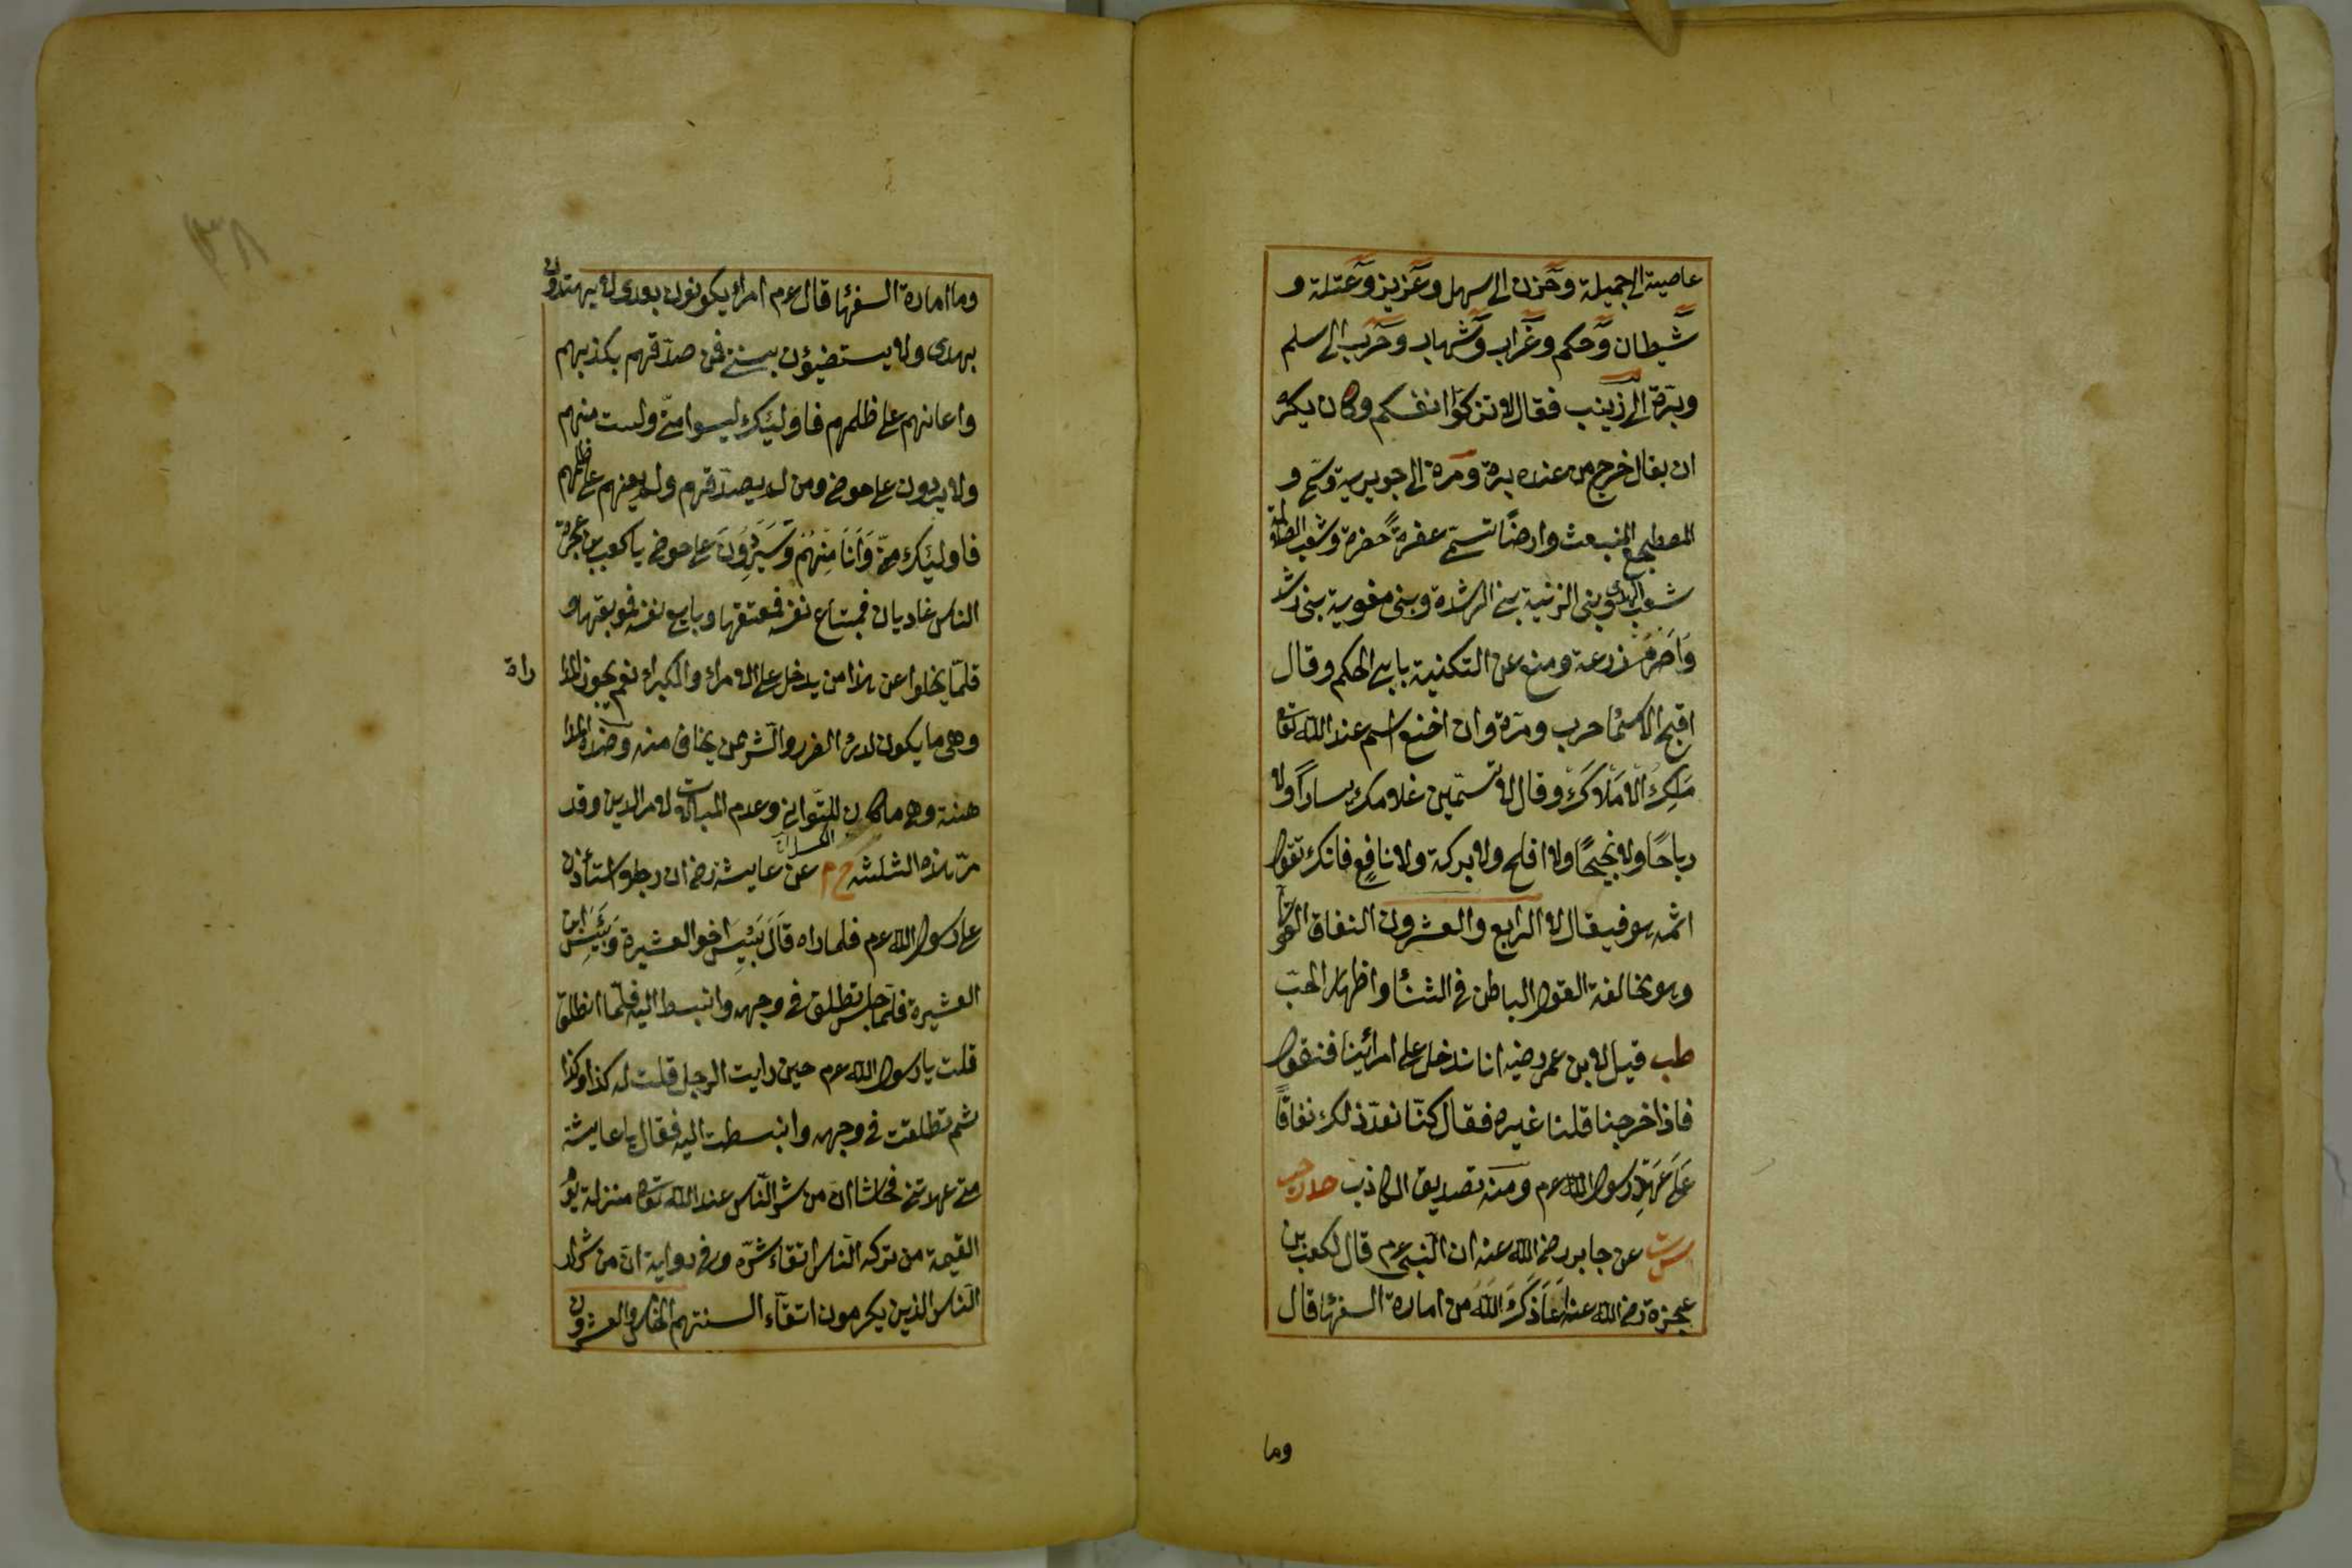 عاصية الى جميلة وحزن الى سهل وعزيز وعتلة و
شيطان وحكم وغراب وشهاب وحرب الى سلم
وبرة الى زينب فقال لا تزكوا انفسكم وكان يكره
ان يقال خرج من عنده برة ومرة الى جويرية وسمى و
المضطجع المنبعث وارضا تسمى عفرة خضرة وشعب الضلالة
شعب الهدى وبنى الزنية بنى الرشدة وبنى مغوية بنى رشد
واصرم زرعة ومنع عن التكنية بابى الحكم وقال
اقبح الاسماء حرب ومرة وان اخنع اسم عند الله تعا
ملك الاملاك وقال لا تسمين غلامك يسارا ولا
رباحا ولا نجيحا ولا افلح ولا بركة ولا نافع فانك تقول
اثمه هو فيقال لا الرابع والعشرون النفاق القولى
وهو مخالفة القول الباطن فى الثناء واظهار الحب
طب قيل لابن عمر رضيه انا ندخل على امرائنا فنقول
فاذا خرجنا قلنا غيره فقال كنا نعد ذلك نفاقا
على عهد رسول الله عم ومنه تصديق الكاذب حد زحب
س ت عن جابر رضى الله عنه ان النبى عم قال لكعب بن
عجزة رضى الله عنه اعاذك الله من امارة السفهاء قال
وما
وما امارة السفهاء قال عم امراء يكونون بعدى لا يهتدون
بهدى ولا يستضيؤن بسنتى فمن صدقهم بكذبهم
واعانهم على ظلمهم فاولئك ليسوا منى ولست منهم
ولا يردون على حوضى ومن لم يصدقهم ولم يعنهم على ظلمهم
فاولئك منى وانا منهم وسيردون على حوضى يا كعب بن عجرة
الناس غاديان فمبتاع نفسه فمعتقها وبايع نفسه فموبقها و
قلما يخلوا عن هذا من يدخل على الامراء والكبراء نعم يجوز المدا
راة
وهى ما يكون لدرء الضرر والشر ممن يخاف منه وضده المدا
هنة وهى ما كان للتوانى وعدم المبالات لامر الدين وقد
مر هذه الثلثة خ م عن عايشة رضى ان رجلا استأذن
على رسول الله عم فلما راه قال بئس اخو العشيرة وبئس ابن
العشيرة فلما جلس تطلق فى وجهه وانبسط اليه فلما انطلق
قلت يا رسول الله عم حين رايت الرجل قلت له كذا وكذا
ثم تطلقت فى وجهه وانبسطت اليه فقال يا عايشة
متى عهدتنى فحاشا ان من شر الناس عند الله تعا منزلة يوم
القيمة من تركه الناس اتقاء شره وفى رواية ان من شرار
الناس الذين يكرمون اتقاء السنتهم الخامس والعشرون
٣٨